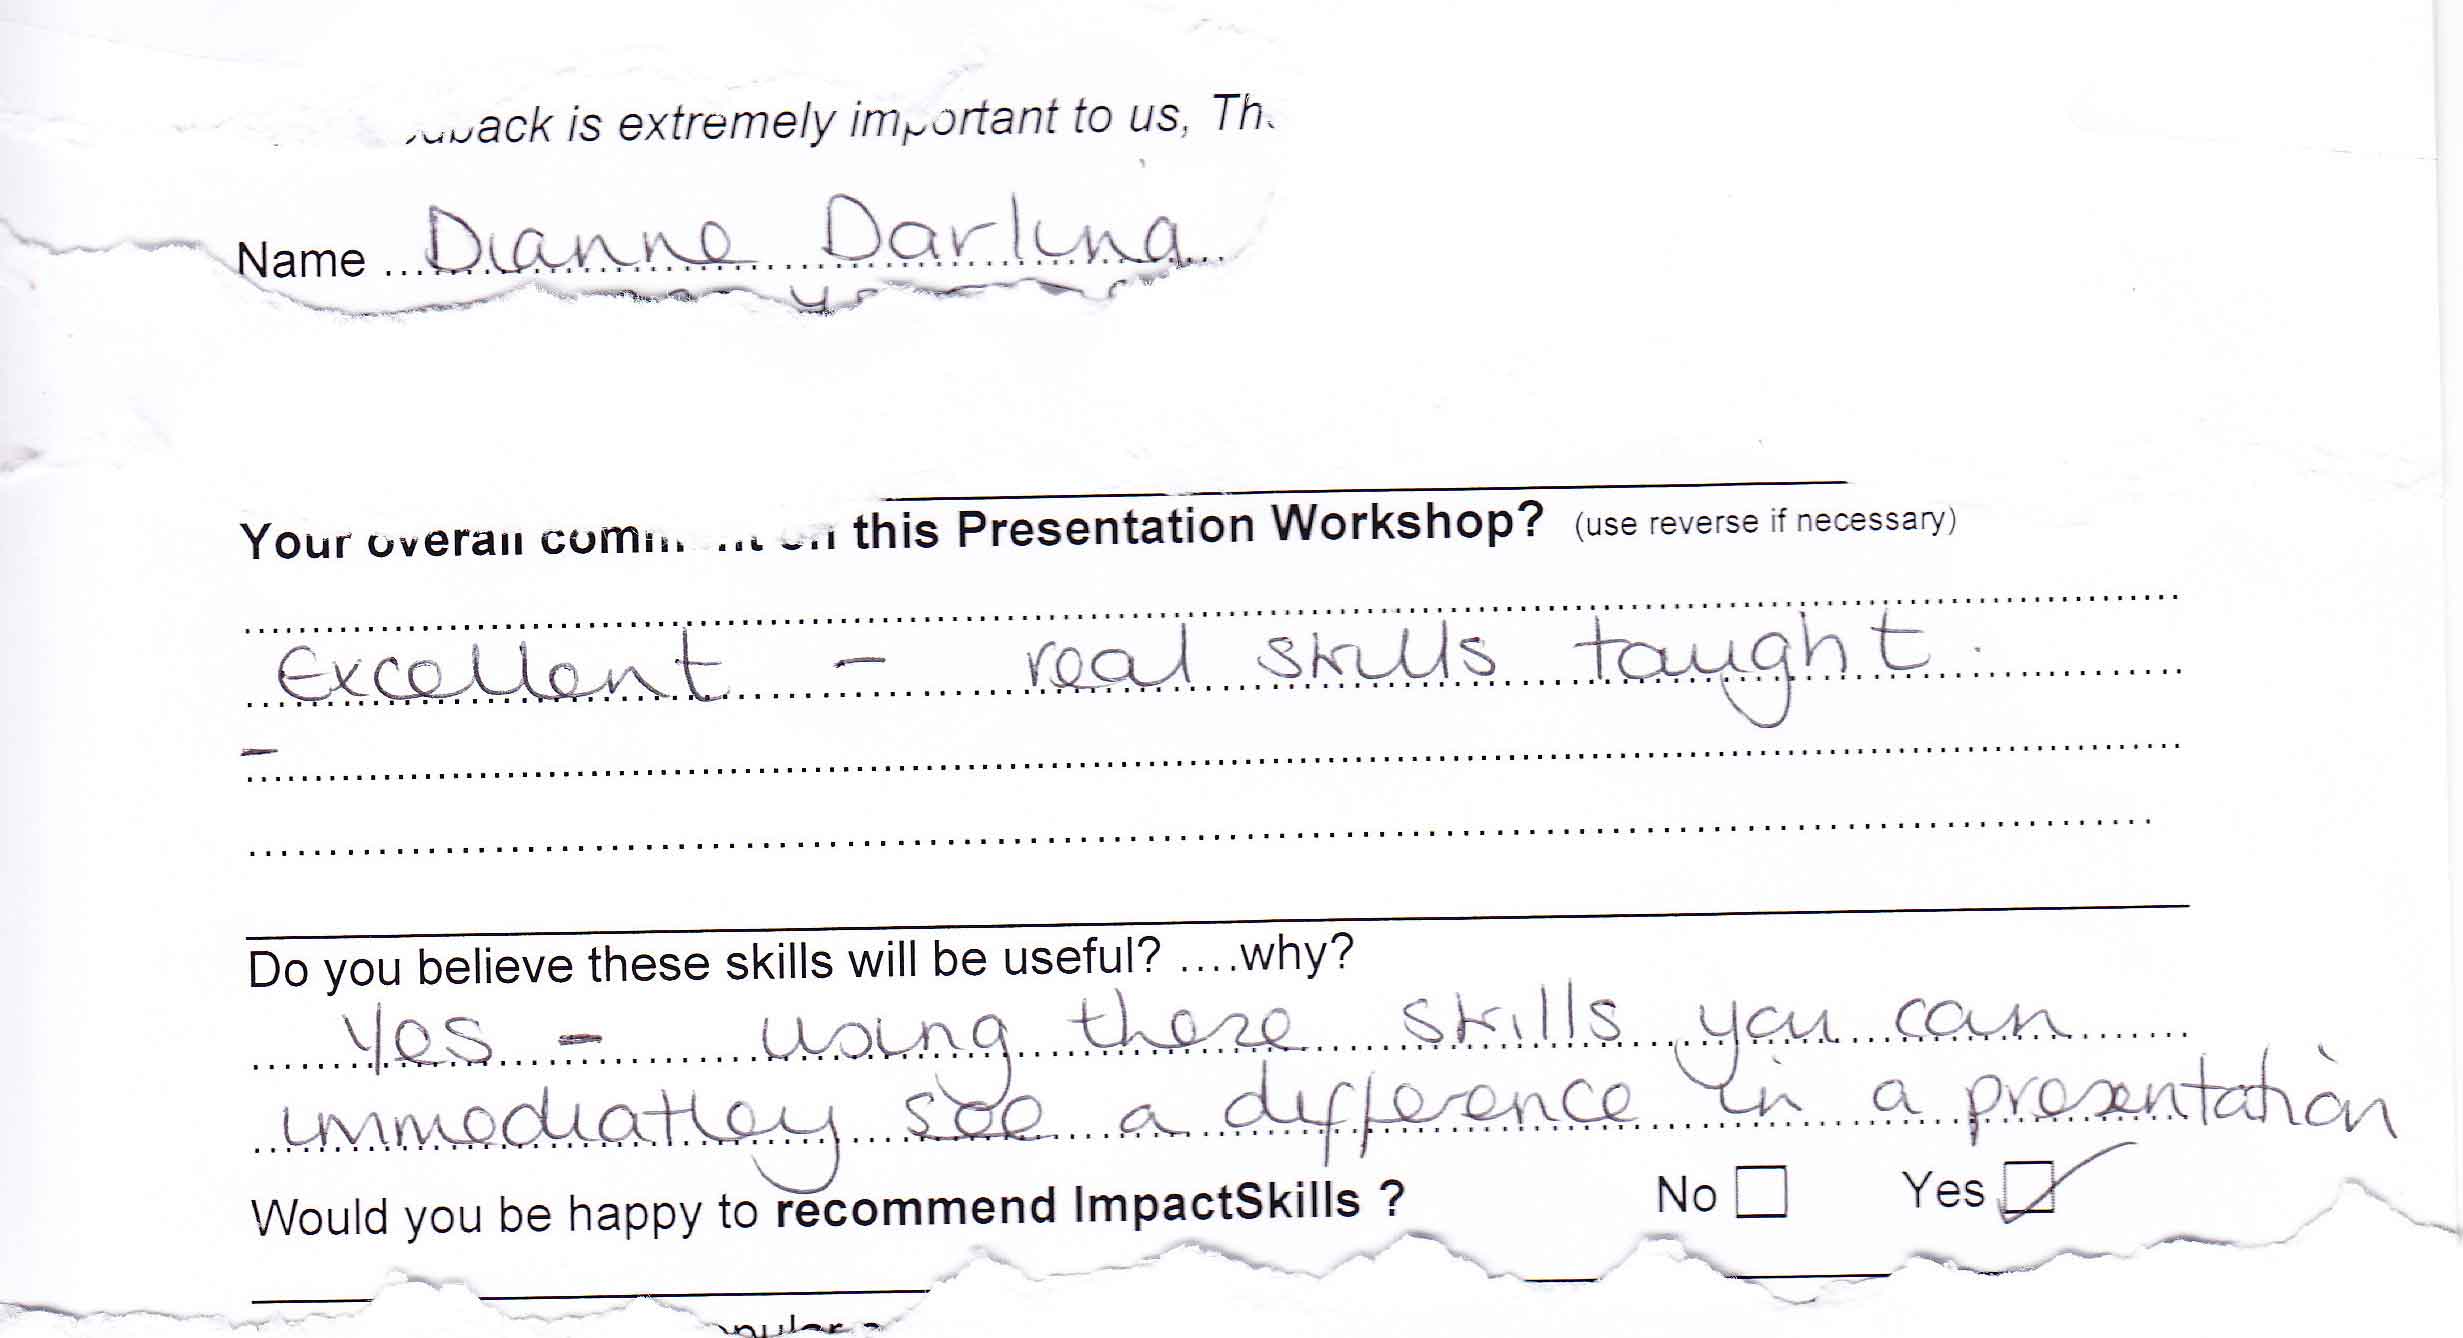 back is extremely important to us, Th
Name ... Dianne Darling
Your overall comment on this Presentation Workshop? (use reverse if necessary)
Excellent - real skills taught.
-
Do you believe these skills will be useful? ....why?
Yes - using these skills you can
immediatley see a difference in a presentation
Would you be happy to recommend ImpactSkills ? No Yes